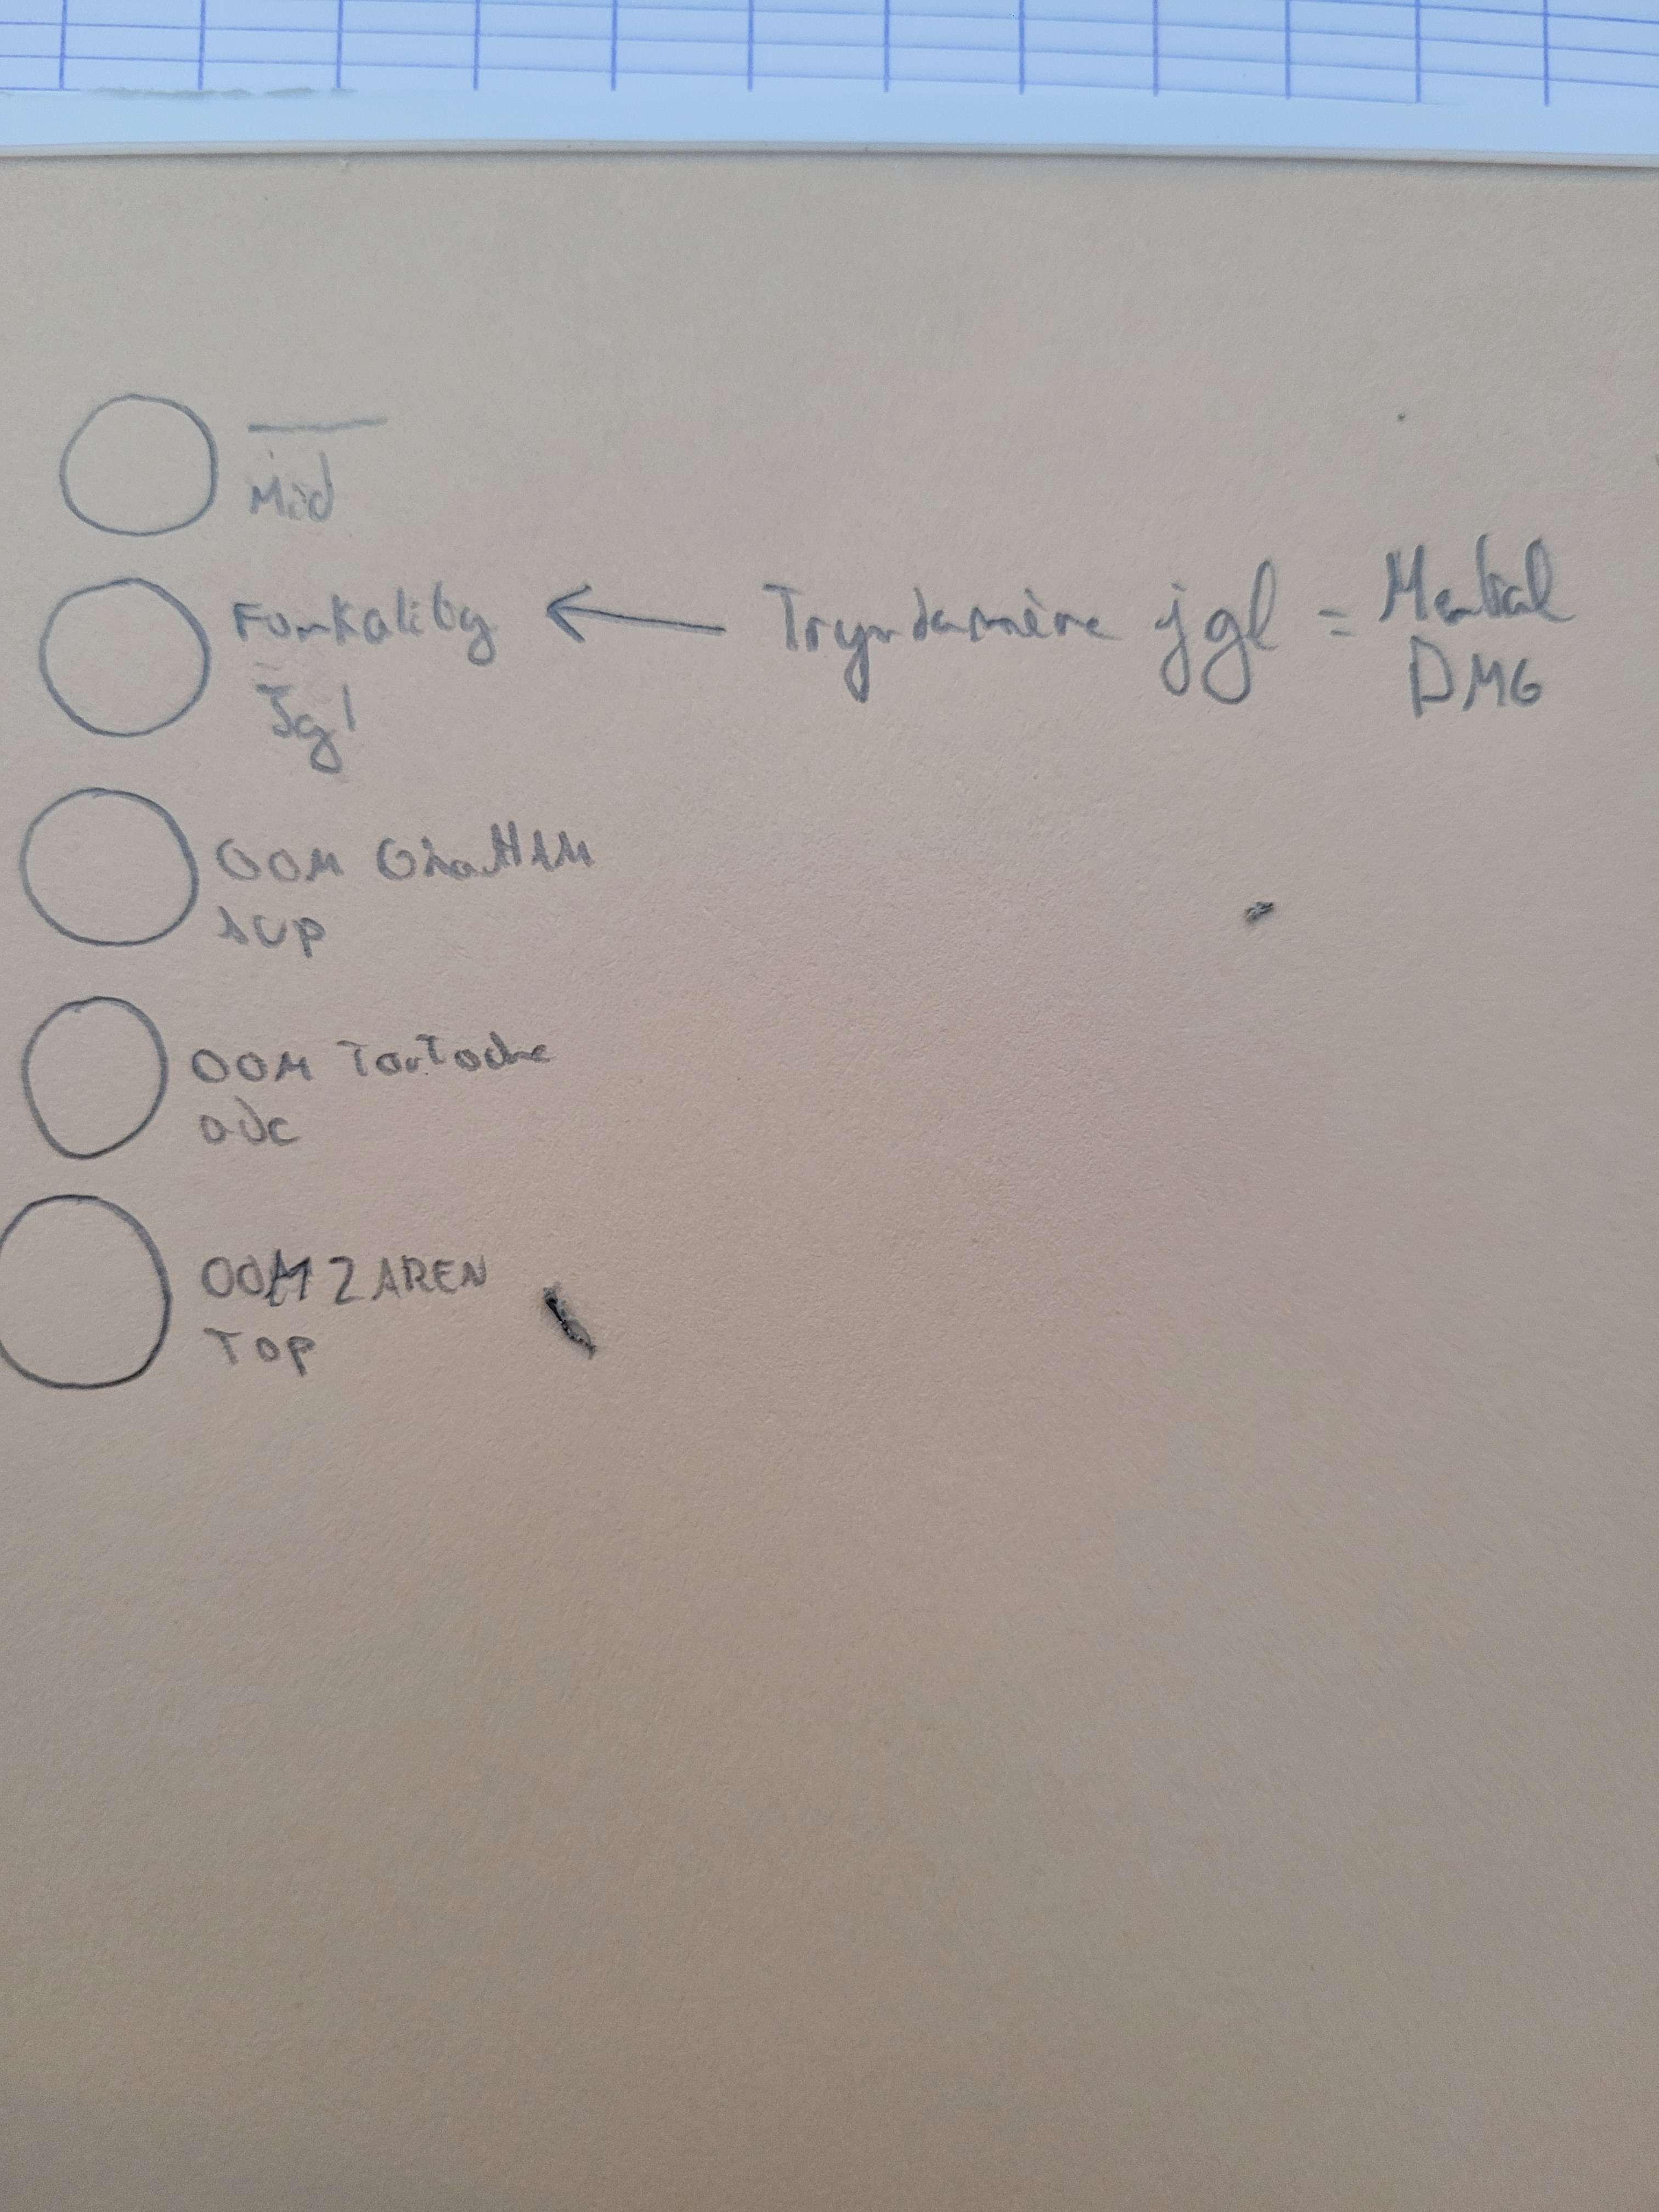 Mid
Tryndamère jgl = Mental
DMG
Jgl
OOM
sup
OOM
adc
OOM ZAREN
Top